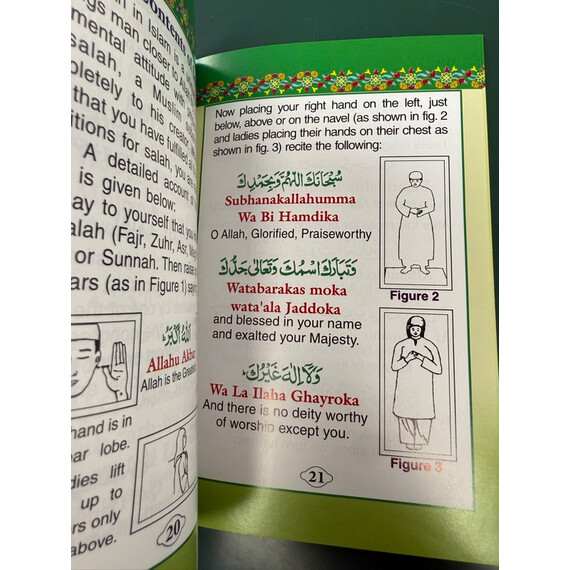 Contents
in Islam is a
gs man closer to
mental attitude with
salah, a Muslim
pletely to his creator
that you have fulfilled
itions for salah, you
A detailed account of
is given below:
ay to yourself that you
alah (Fajr, Zuhr, Asr,
or Sunnah. Then raise
ars (as in Figure 1) say
اَللّٰهُ اَكْبَرُ
Allahu Akbar
Allah is the Greatest
hand is in
ear lobe.
dies lift
up to
rs only
above.
20
Now placing your right hand on the left, just
below, above or on the navel (as shown in fig. 2
and ladies placing their hands on their chest as
shown in fig. 3) recite the following:
سُبْحَانَكَ اللّٰهُمَّ وَبِحَمْدِكَ
Subhanakallahumma
Wa Bi Hamdika
O Allah, Glorified, Praiseworthy
وَتَبَارَكَ اسْمُكَ وَتَعَالٰى جَدُّكَ
Watabarakas moka
wata'ala Jaddoka
and blessed in your name
and exalted your Majesty.
وَلَا اِلٰهَ غَيْرُكَ
Wa La Ilaha Ghayroka
And there is no deity worthy
of worship except you.
Figure 2
Figure 3
21